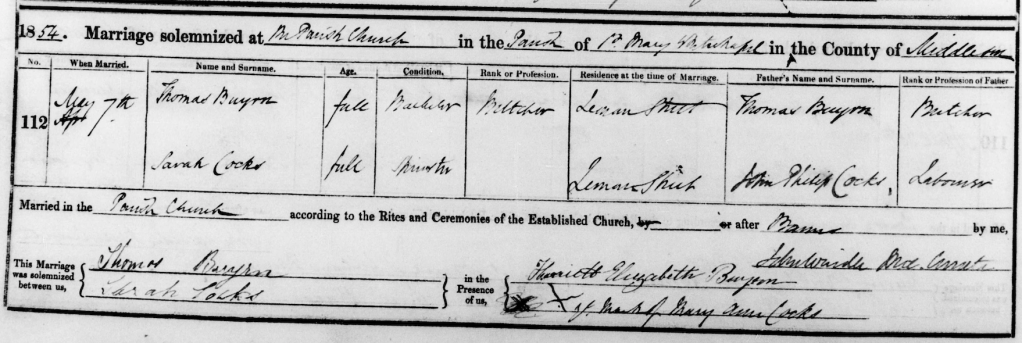 1854. Marriage solemnized at the Parish Church in the Parish of St Mary Whitechapel in the County of Middlesex
No. When Married. Name and Surname. Age. Condition. Rank or Profession. Residence at the time of Marriage. Father's Name and Surname. Rank or Profession of Father
112 May 7th Thomas Buyrn full Bachelor Butcher Leman Street Thomas Buyrn Butcher
Apr
Sarah Cocks full Spinster Leman Street John Philip Cocks, Labourer
Married in the Parish Church according to the Rites and Ceremonies of the Established Church, by or after Banns by me,
Curate
This Marriage was solemnized between us, Thomas
Sarah Cocks
in the Presence of us, Harriett Elizabeth Buyrn
Mark of Mary Ann Cocks